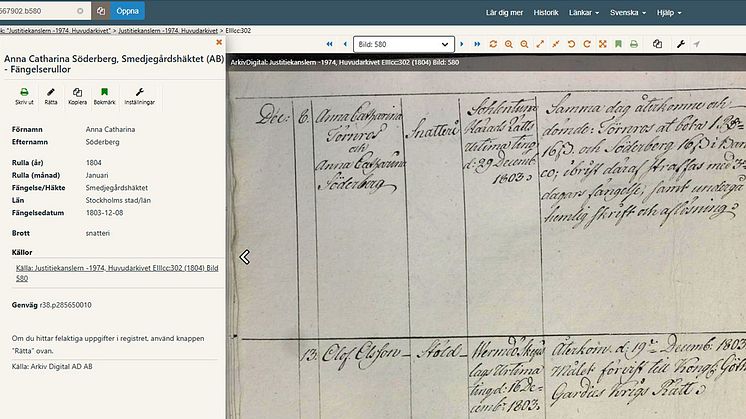 567902.b580
Öppna
Lär dig mer
Historik
Länkar
Svenska
Hjälp
k: "Justitiekanslern -1974, Huvudarkivet" > Justitiekanslern -1974, Huvudarkivet > EIIIcc:302
Bild: 580
ArkivDigital: Justitiekanslern -1974, Huvudarkivet EIIIcc:302 (1804) Bild: 580
Anna Catharina Söderberg, Smedjegårdshäktet (AB)
- Fängelserullor
Skriv ut
Rätta
Kopiera
Bokmärk
Inställningar
Förnamn Anna Catharina
Efternamn Söderberg
Rulla (år) 1804
Rulla (månad) Januari
Fängelse/Häkte Smedjegårdshäktet
Län Stockholms stad/län
Fängelsedatum 1803-12-08
Brott snatteri
Källor
Källa: Justitiekanslern -1974, Huvudarkivet EIIIcc:302 (1804) Bild
580
Genväg r38.p285650010
Om du hittar felaktiga uppgifter i registret, använd knappen
"Rätta" ovan.
Källa: Arkiv Digital AD AB
Dec: 6.
Anna Catharina
Törnros
och
Anna Catharina
Söderberg
Snatteri
Sohlentuna
Härads Rätts
Urtima ting
d: 29 Decemb:
1803.
Samma dag återkomne och
dömde: Törnros at böta
och Söderberg
straffas med
dagars fängelse, samt undergå
hemlig skrift och aflösning
13. Olof Olsson
Stöld
Wermdö Skep
lags Urtima
ting d: 16 De-
cemb: 1803.
Återkom d: 19 Decemb: 1803
Målet förvist till Kongl: Göth
Gardies Krigs Rätt.